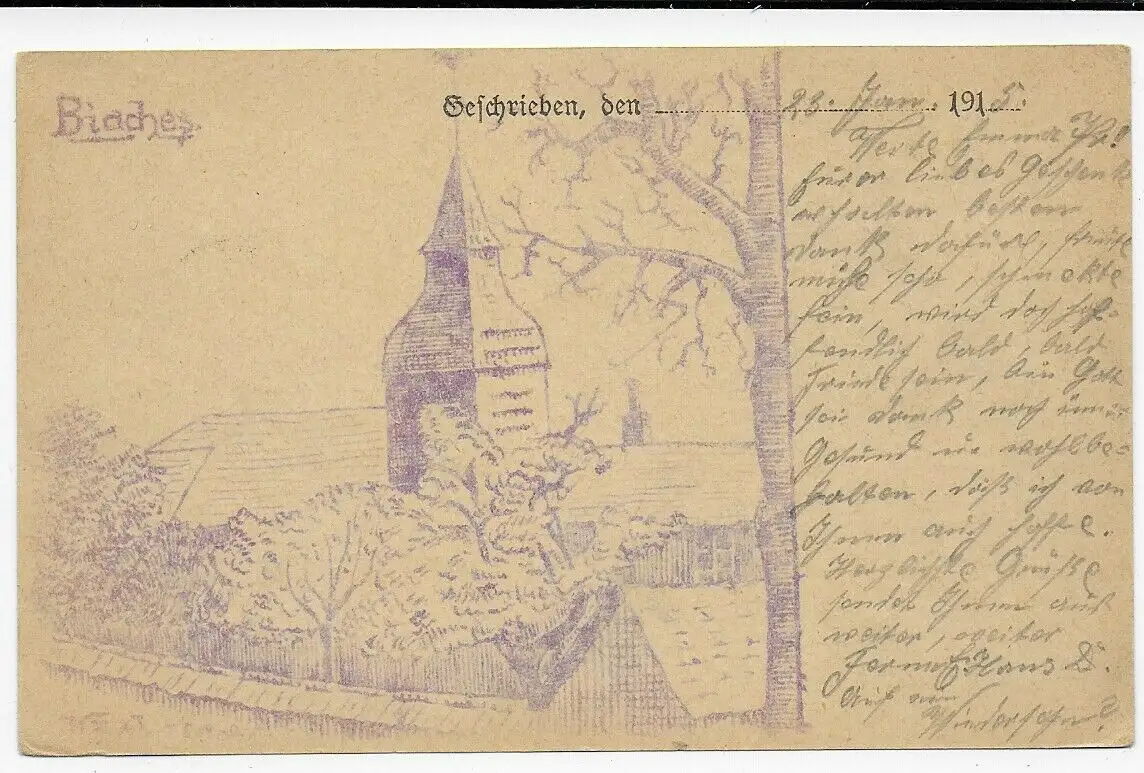 Biaches
Geschrieben, den 28. Jan. 1915.
Werte Emma
liebes Geschenk
erhalten, besten
Dank dafür, freute
mich sehr, schmekte
fein, wird doch hof-
fendlich bald, bald
Friede sein, bin Gott
sei dank noch immer
Gesund u. wohlbe-
halten, daß ich von
Ihnen auch hoffe.
Herzlichste Grüße
sendet Ihnen aus
weiter, weiter
Ferne Hans D.
Auf ein
Wiedersehn!